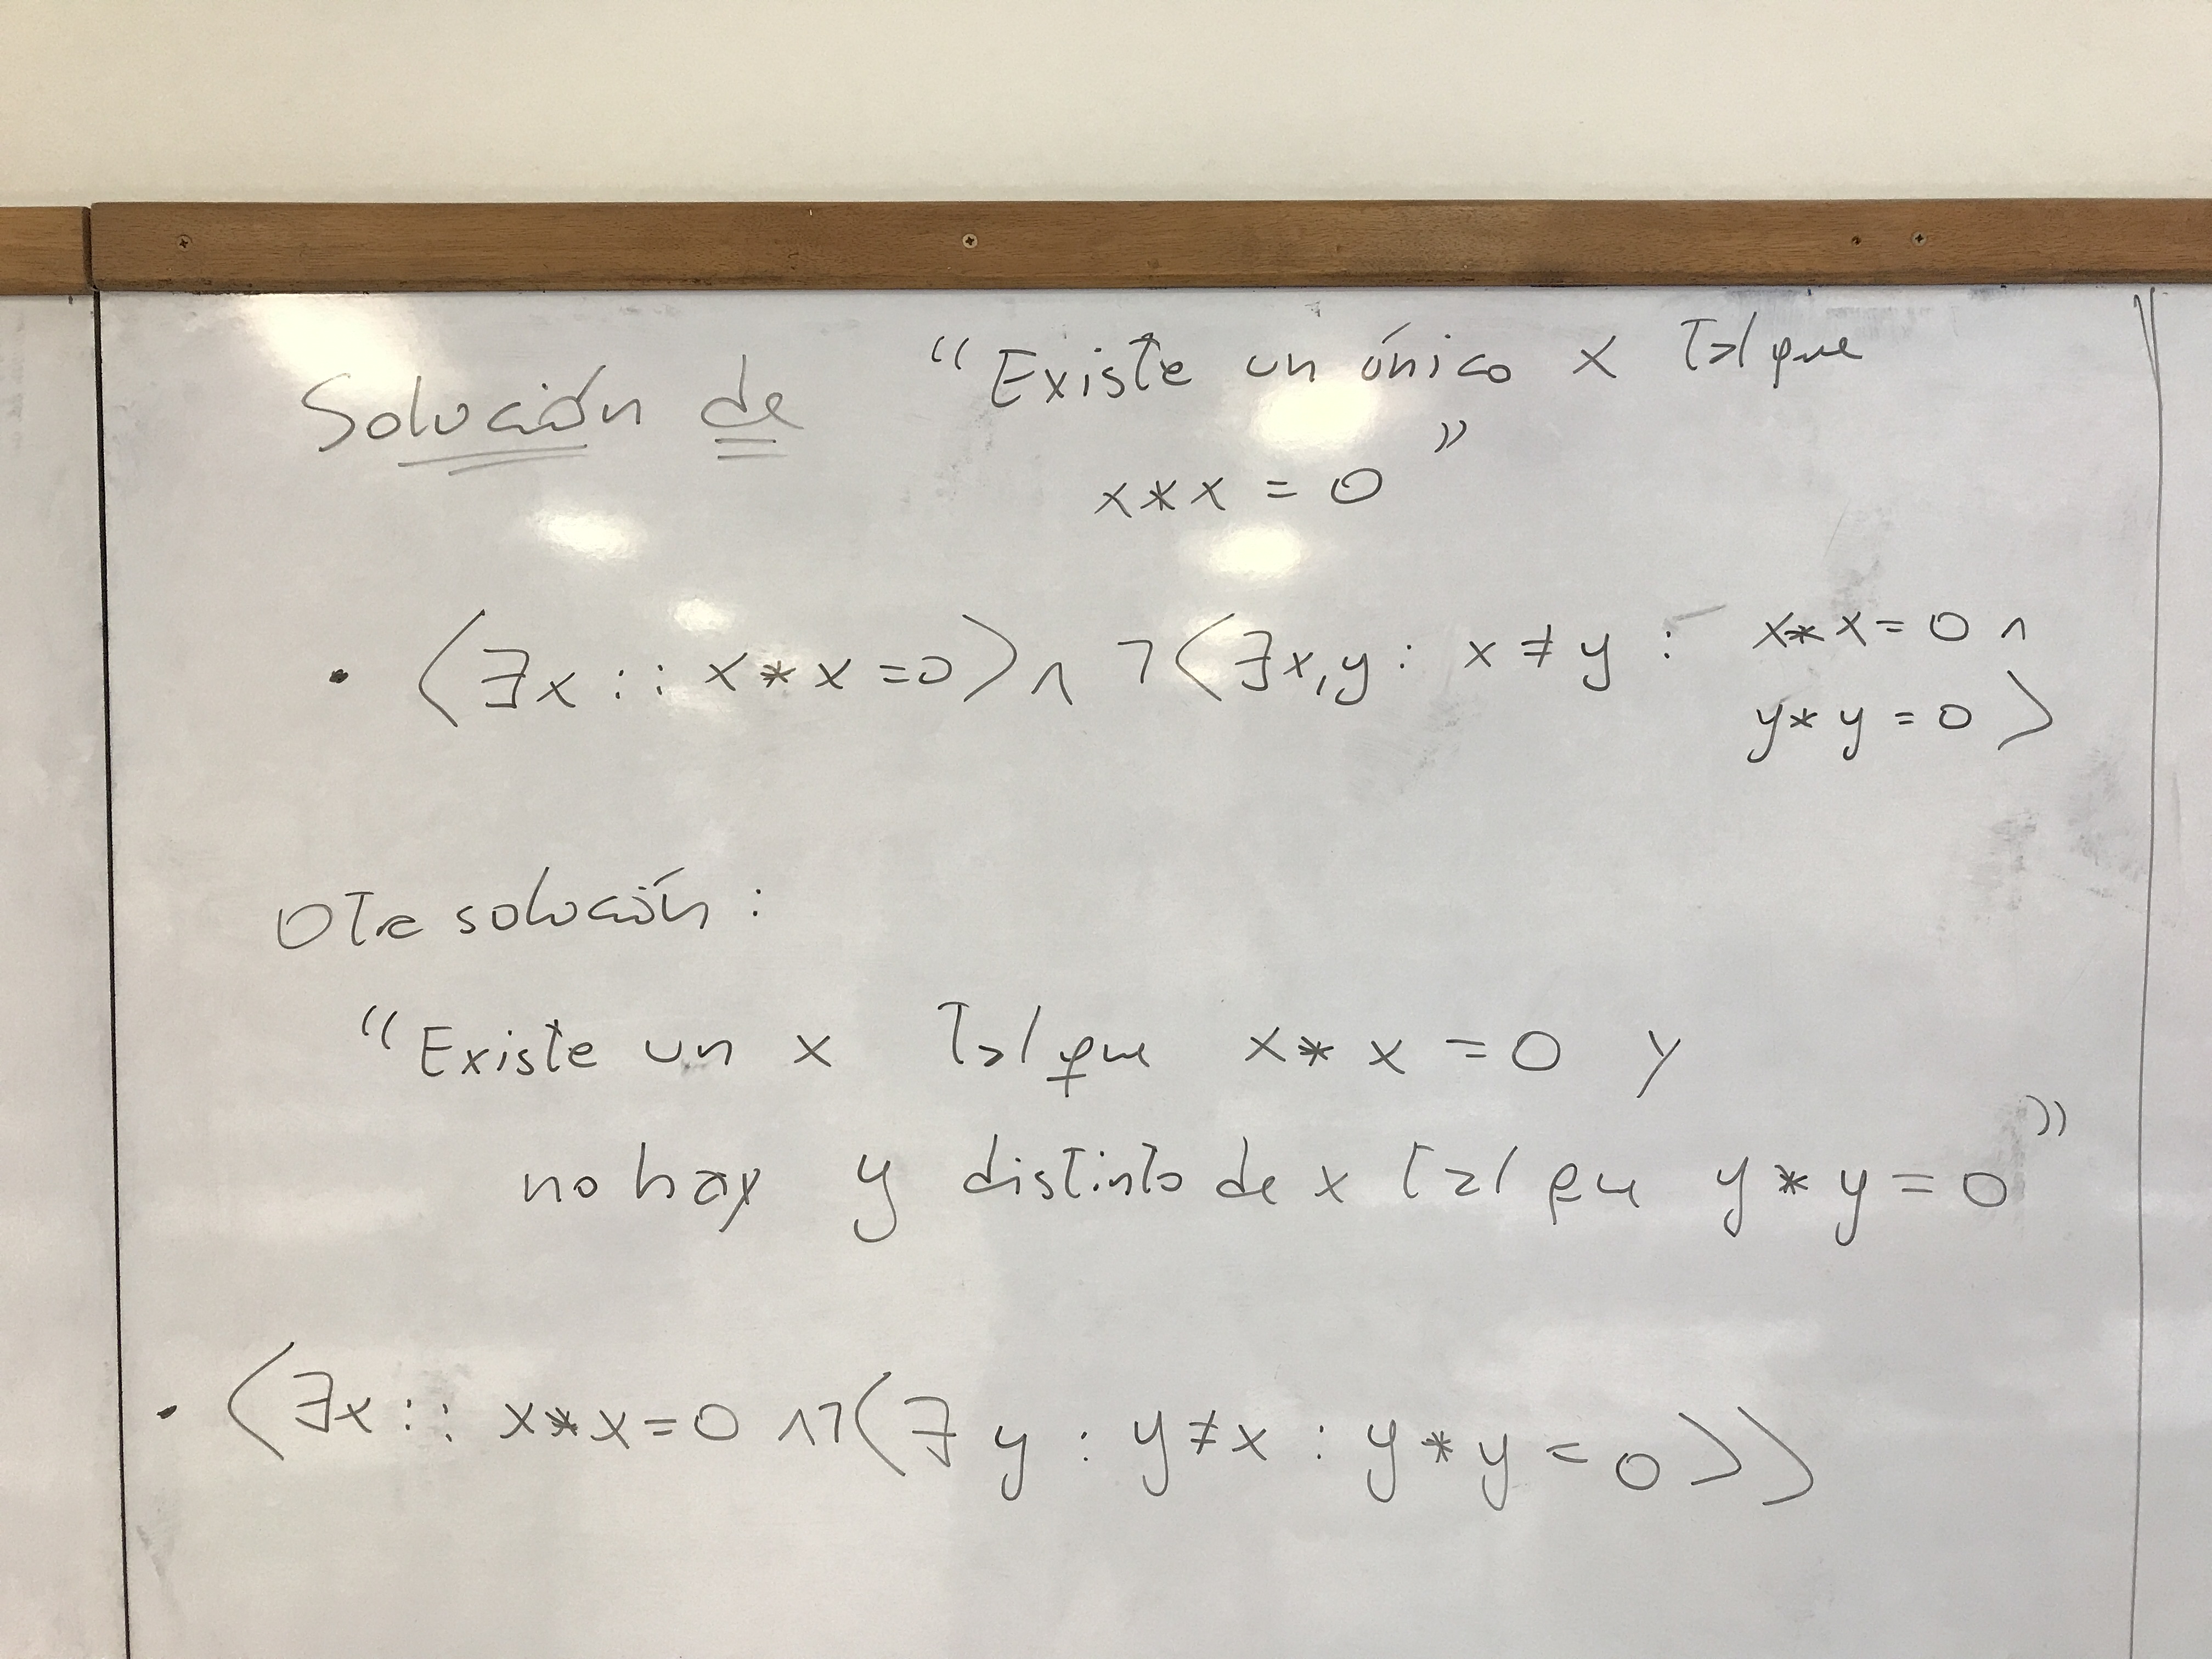 Solución de “Existe un único x tal que
x*x = 0”
• ⟨∃x :: x*x=0⟩ ∧ ¬⟨∃x,y : x≠y : x*x=0 ∧
y*y=0⟩
Otra solución :
“Existe un x tal que x*x=0 y
no hay y distinto de x tal que y*y=0”
• ⟨∃x :: x*x=0 ∧¬⟨∃y : y≠x : y*y=0⟩⟩